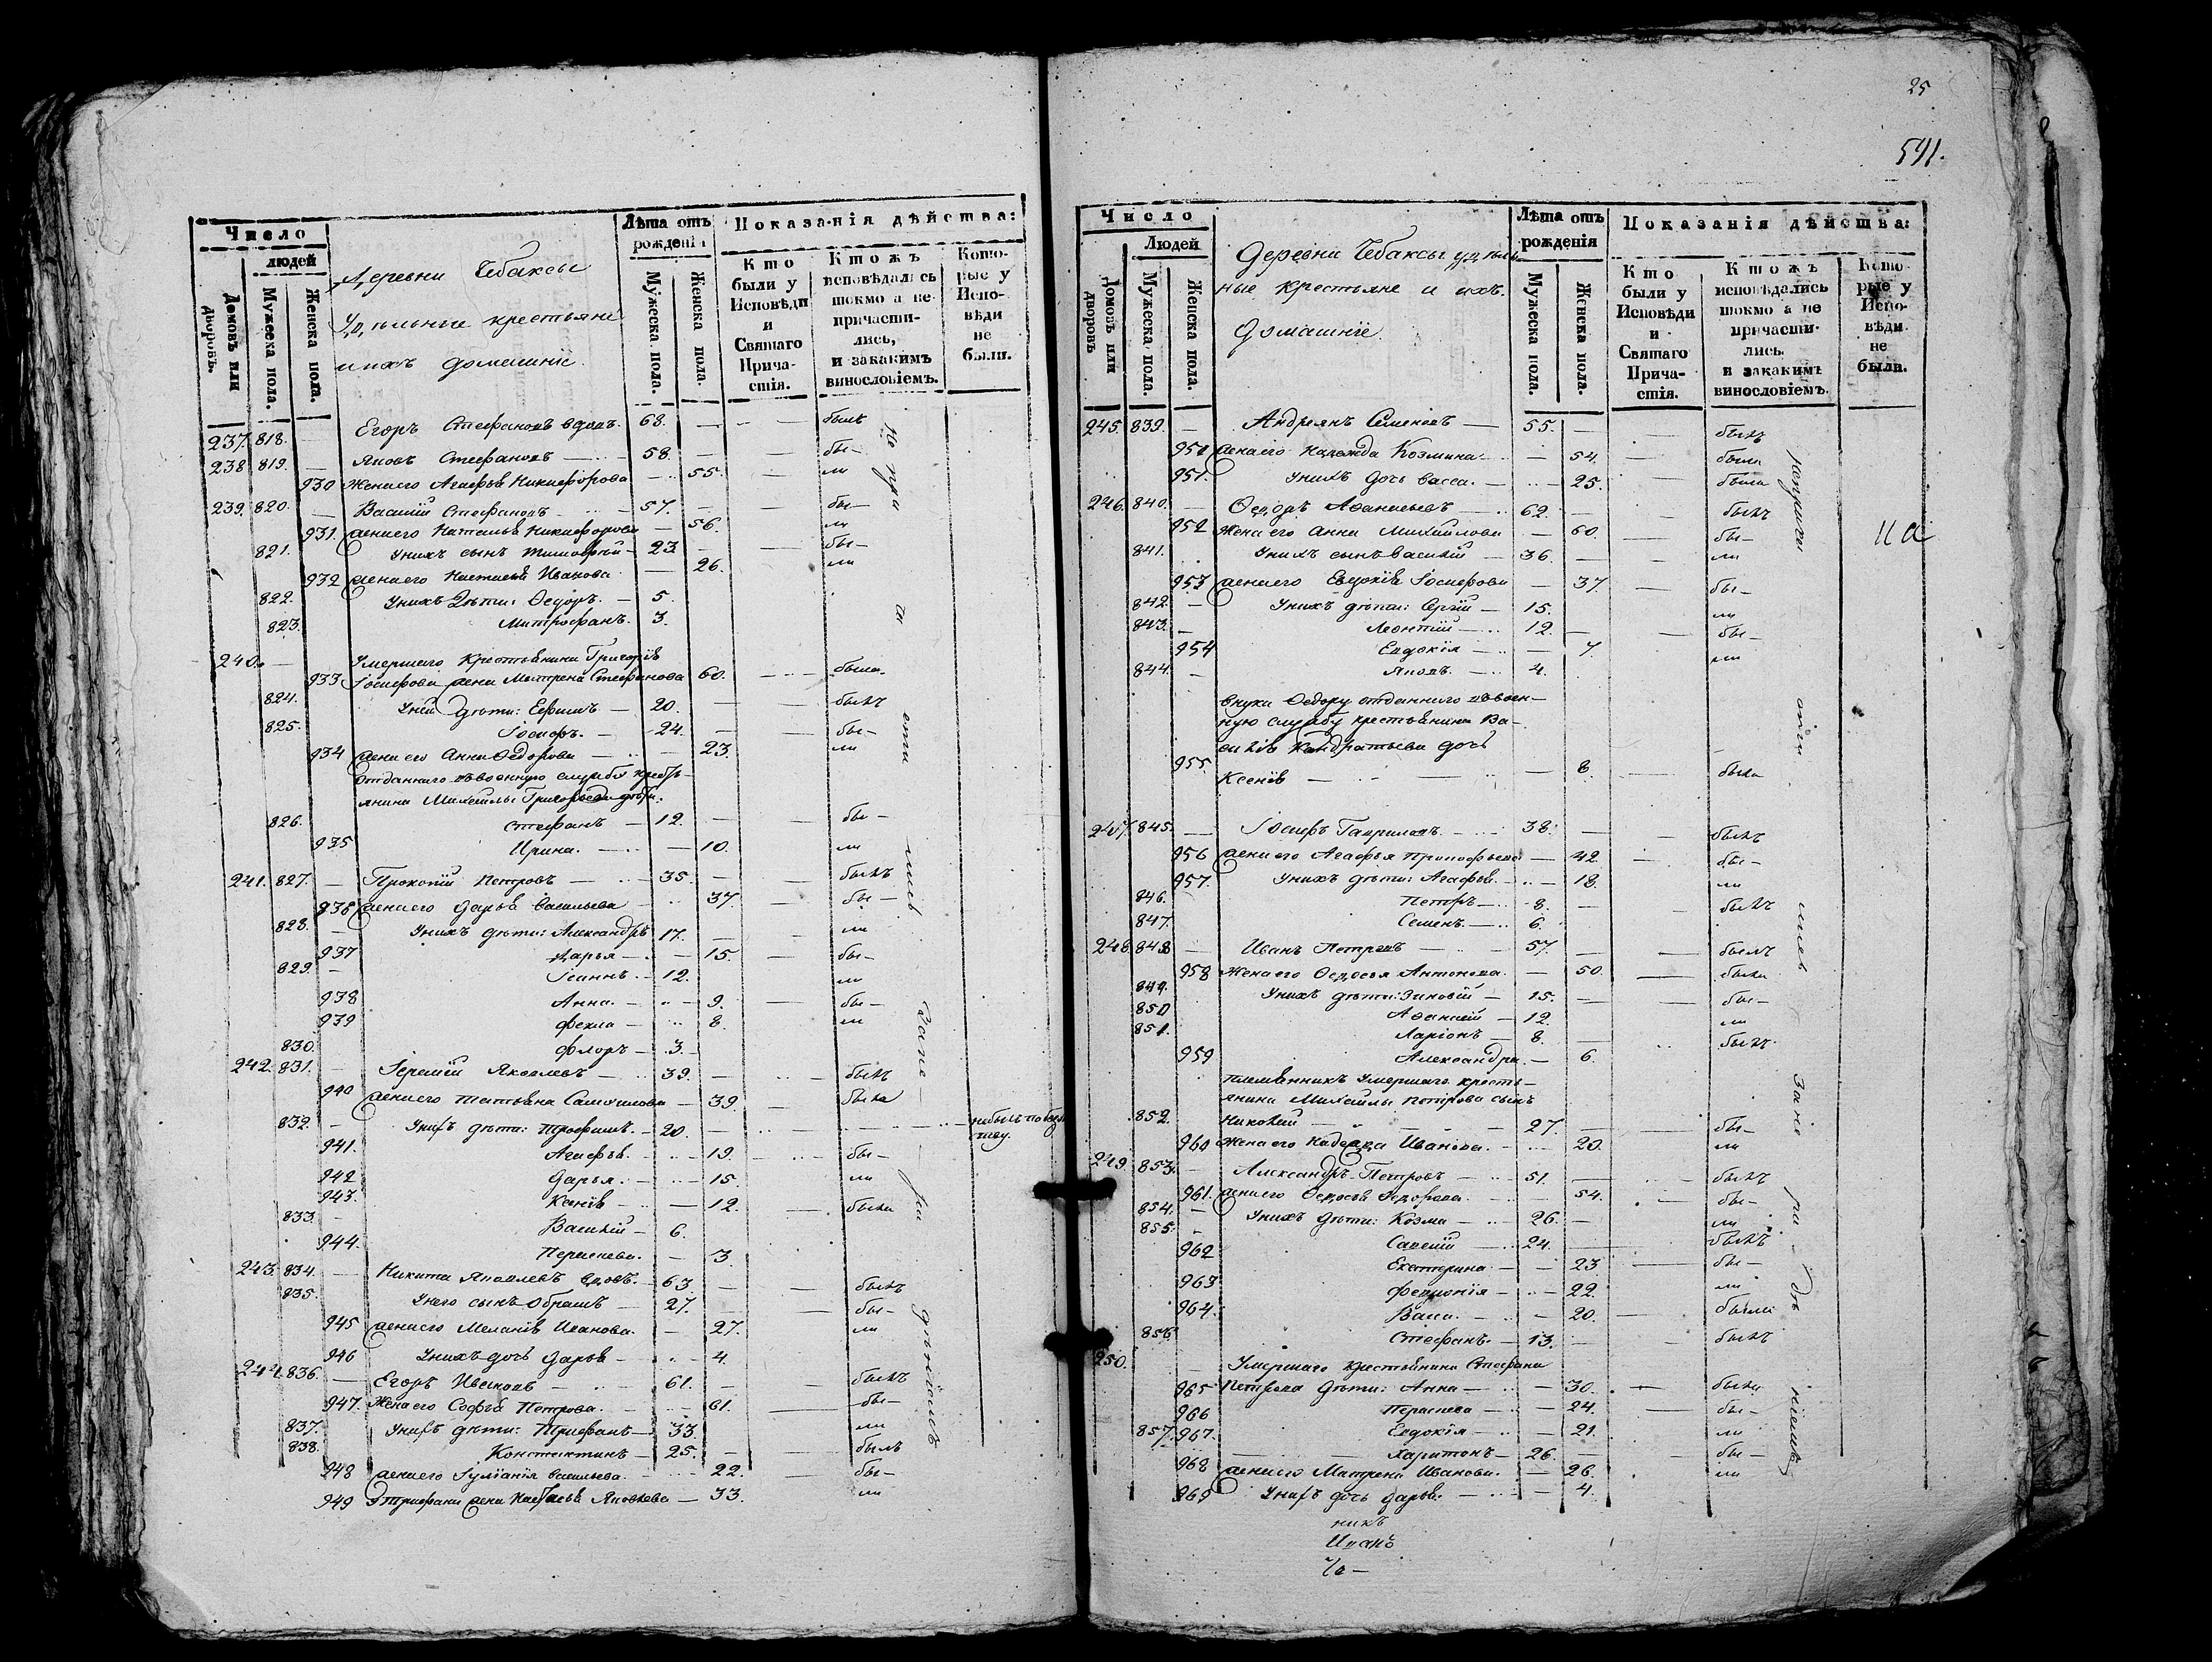 Число
людей
Домовъ или дворовъ.
Мужеска пола.
Женска пола.
Деревни Чебаксы
Удѣльные крестьяне
и ихъ домашніе.
Лѣта отъ рожденія
Мужеска пола.
Женска пола.
Показанія дѣйства:
Кто были у Исповѣди и Святаго Причастія.
Ктожъ исповѣдались токмо а не причастились, и закакимъ винословіемъ.
Которые у Исповѣди не были.
237. 818. Егоръ Стефановъ вдовъ. 68. былъ
238 819. Яковъ Стефановъ 58. бы-
930 Жена его Агафья Никифорова 55. ли
239. 820. Василій Стефановъ 57. бы-
931. жена его Наталья Никифорова 56. ли
821. Унихъ сынъ Тимофей 23 бы-
932 жена его Настасья Иванова 26. ли
822. Унихъ дѣти: Ѳедоръ. 5.
823. Митрофанъ. 3.
240. Умершаго Крестьянина Григорія
933 Іосифова жена Матрена Стефанова 60. была
824. Уней дѣти: Ефимъ 20. былъ
825. Іосифъ. 24. бы-
934 жена его Анна Ѳедорова 23. ли
отданнаго въ военную службу кресть-
янина Михайлы Григорьева дѣти:
826. Стефанъ 12. бы-
935 Ирина. 10. ли
241. 827. Прокопій Петровъ 35. былъ
936 жена его Дарья Васильева 37 бы-
828. Унихъ дѣти: Александръ 17. ли
937 Марья 15 бы-
829 Іоаннъ. 12. ли
938 Анна. 9. бы-
939 Фекла 8. ли
830. Флоръ 3.
242. 831. Іеремій Яковлевъ 39. былъ
940 жена его Татьяна Самойлова 39. была
832. Унихъ дѣти: Трофимъ. 20. небылъ по
941. Агафья. 19. бы-
942 Дарья. 15. ли
943. Ксенія 12. была
833. Василій 6.
944. Пелагея. 3
243. 834. Никита Яковлевъ вдовъ. 63 былъ
835. Унего сынъ Абрамъ 27. бы-
945 жена его Меланія Иванова. 27. ли
946 Унихъ дочь Дарья 4.
244. 836. Егоръ Ивановъ 61. былъ
947. Жена его Софья Петрова. 61. бы-
837. Унихъ дѣти: Трифанъ 33 ли
838. Константинъ 25. былъ
948 жена его Іуліанія Васильева. 22. бы-
949 Утрифана жена Настасья Яковлева 33. ли
Не при ча сти лись Запе ра дѣніемъ
25
591.
Число
Людей
Домовъ или дворовъ
Мужеска пола
Женска пола.
Деревни Чебаксы удѣль-
ные крестьяне и ихъ
домашніе.
Лѣта отъ рожденія
Мужеска пола.
Женска пола.
Показанія дѣйства:
Кто были у Исповѣди и Святаго Причастія.
Ктожъ исповѣдались токмо а не причастились. и закакимъ винословіемъ.
Которые у Исповѣди не были.
245. 839. Андреянъ Семеновъ 55. былъ
950 жена его Надежда Козмина 54. была
951. Унихъ дочь Васса. 25. была
246. 840. Ѳедоръ Аѳанасьевъ 62. былъ
952 Жена его Анна Михайлова 60. бы-
841. Унихъ сынъ Василій 36. ли
953 жена его Евдокія Іосифова 37. бы-
842. Унихъ дѣти: Сергій 15. ли
843. Леонтій 12. бы-
954 Евдокія 7. ли
844. Яковъ. 4.
внука Ѳедору отданнаго въ воен-
ную службу крестьянина Ва-
силія Кондратьева дочь
955. Ксенія 8. была
247. 845. Іосифъ Гавриловъ. 38. былъ
956 жена его Агафья Прокофьева 42. бы-
957. Унихъ дѣти: Агафья. 18. ли
846. Петръ 8. былъ
847. Семенъ. 6.
248. 848 Иванъ Петровъ 57. былъ
958 Жена его Ѳедосья Антонова. 50. была
849. Унихъ дѣти: Зиновій 15. бы-
850 Аѳанасій 12. ли
851. Ларіонъ 8. былъ
959 Александра. 6.
племянникъ Умершаго кресть-
янина Михайлы Петрова сынъ
852. Николай 27. бы-
960 Жена его Надежда Иванова. 20. ли
249. 853. Александръ Петровъ 51. былъ
961. жена его Ѳедосья Ѳедорова. 54. бы-
854. Унихъ дѣти: Козма 26. ли
855. Савелій 24. былъ
962 Екатерина 23 бы-
963 22. ли
964. Васса. 20. была
856 Стефанъ. 13. былъ
250. Умершаго крестьянина Стефана
965 Петрова дѣти: Анна 30. была
966 Пелагея 24. бы-
967. Евдокія 21. ли
857 Харитонъ 26. бы-
968 жена его Матрена Иванова. 26. ли
969 Унихъ дочь Дарья. 4.
неприча сти лись Зане ра дѣ ніемъ
на
никъ
Иванъ